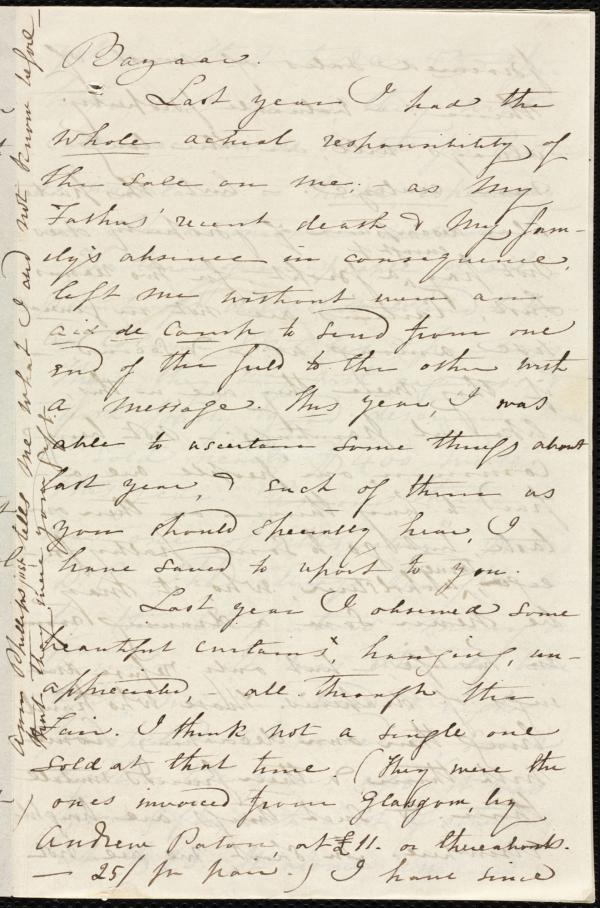 Bazaar.
Last year I had the
whole actual responsibility of
the sale on me: as my
Father's recent death & my fam-
ily's absence in consequence,
left me without even an
aid de camp to send from one
end of the field to the other with
a message. This year, I was
able to ascertain some things about
last year, & such of them as
you should specially hear, I
have saved to report to you.
Last year I observed some
beautiful curtains,x hanging, un-
appreciated, - all through the
Fair. I think not a single one
sold at that time. (They were the
ones invoiced from Glasgow, by
Andrew Paton, at £11. or thereabouts.
— 25/ pr pair.) I have since
x Ann Phillips just tells me what I did not know before —
that these were your gift.